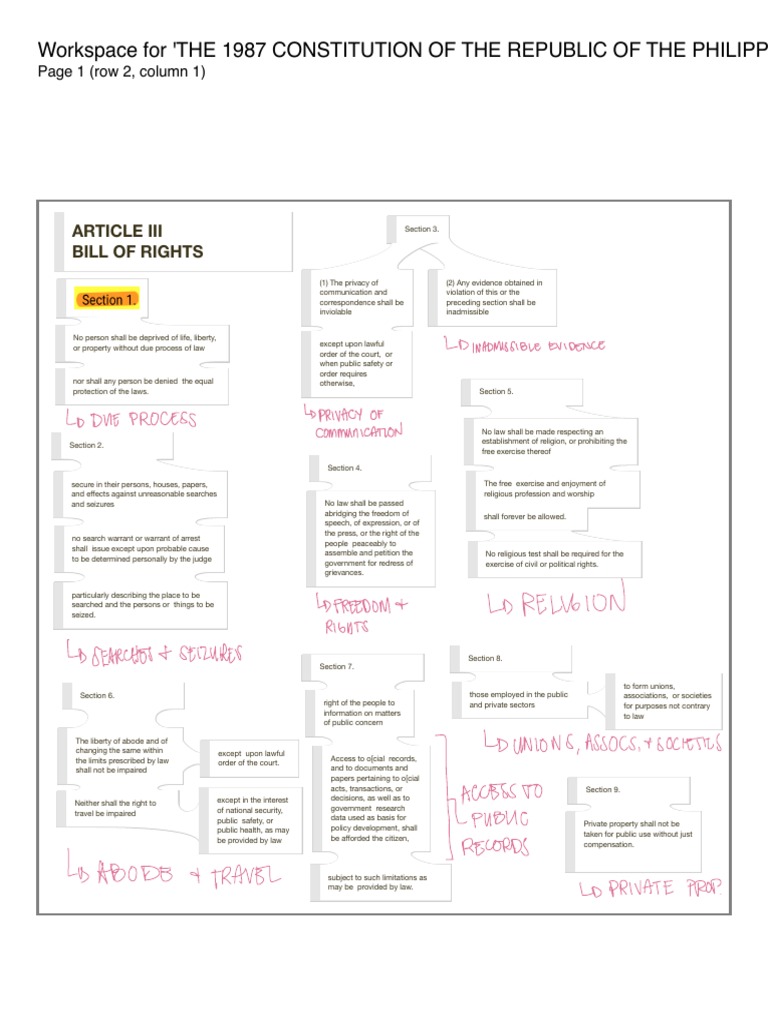 Workspace for 'THE 1987 CONSTITUTION OF THE REPUBLIC OF THE PHILIPP
Page 1 (row 2, column 1)
ARTICLE III
BILL OF RIGHTS
Section 1.
No person shall be deprived of life, liberty,
or property without due process of law
nor shall any person be denied the equal
protection of the laws.
DUE PROCESS
Section 2.
secure in their persons, houses, papers,
and effects against unreasonable searches
and seizures
no search warrant or warrant of arrest
shall issue except upon probable cause
to be determined personally by the judge
particularly describing the place to be
searched and the persons or things to be
seized.
SEARCHES + SEIZURES
Section 3.
(1) The privacy of
communication and
correspondence shall be
inviolable
except upon lawful
order of the court, or
when public safety or
order requires
otherwise,
PRIVACY OF
COMMUNICATION
(2) Any evidence obtained in
violation of this or the
preceding section shall be
inadmissible
INADMISSIBLE EVIDENCE
Section 4.
No law shall be passed
abridging the freedom of
speech, of expression, or of
the press, or the right of the
people peaceably to
assemble and petition the
government for redress of
grievances.
FREEDOM +
RIGHTS
Section 5.
No law shall be made respecting an
establishment of religion, or prohibiting the
free exercise thereof
The free exercise and enjoyment of
religious profession and worship
shall forever be allowed.
No religious test shall be required for the
exercise of civil or political rights.
RELIGION
Section 6.
The liberty of abode and of
changing the same within
the limits prescribed by law
shall not be impaired
except upon lawful
order of the court.
Neither shall the right to
travel be impaired
except in the interest
of national security,
public safety, or
public health, as may
be provided by law
ABODE + TRAVEL
Section 7.
right of the people to
information on matters
of public concern
Access to o[cial records,
and to documents and
papers pertaining to o[cial
acts, transactions, or
decisions, as well as to
government research
data used as basis for
policy development, shall
be afforded the citizen,
subject to such limitations as
may be provided by law.
ACCESS TO
PUBLIC
RECORDS
Section 8.
those employed in the public
and private sectors
to form unions,
associations, or societies
for purposes not contrary
to law
UNIONS, ASSOCS, + SOCIETIES
Section 9.
Private property shall not be
taken for public use without just
compensation.
PRIVATE PROP.